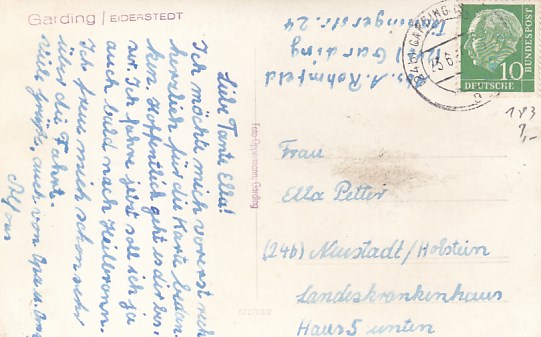 Garding / EIDERSTEDT
Liebe Tante Ella!
Ich möchte mich vorerst recht
herzlich für die Karte bedan-
ken. Hoffentlich geht es dir bes-
ser. Ich fahre jetzt soll ich ja
auch bald nach Heilbronn.
Ich freue mich schon sehr
über die Fahrt.
Viele Grüße, auch von Opa u. Oma
Foto Garding
A. Rohmfeld
Garding
str. 24
GARDING
DEUTSCHE
BUNDESPOST
10
183
Frau
Ella Petter
(24b) Neustadt/Holstein
Landeskrankenhaus
Haus 5 unten